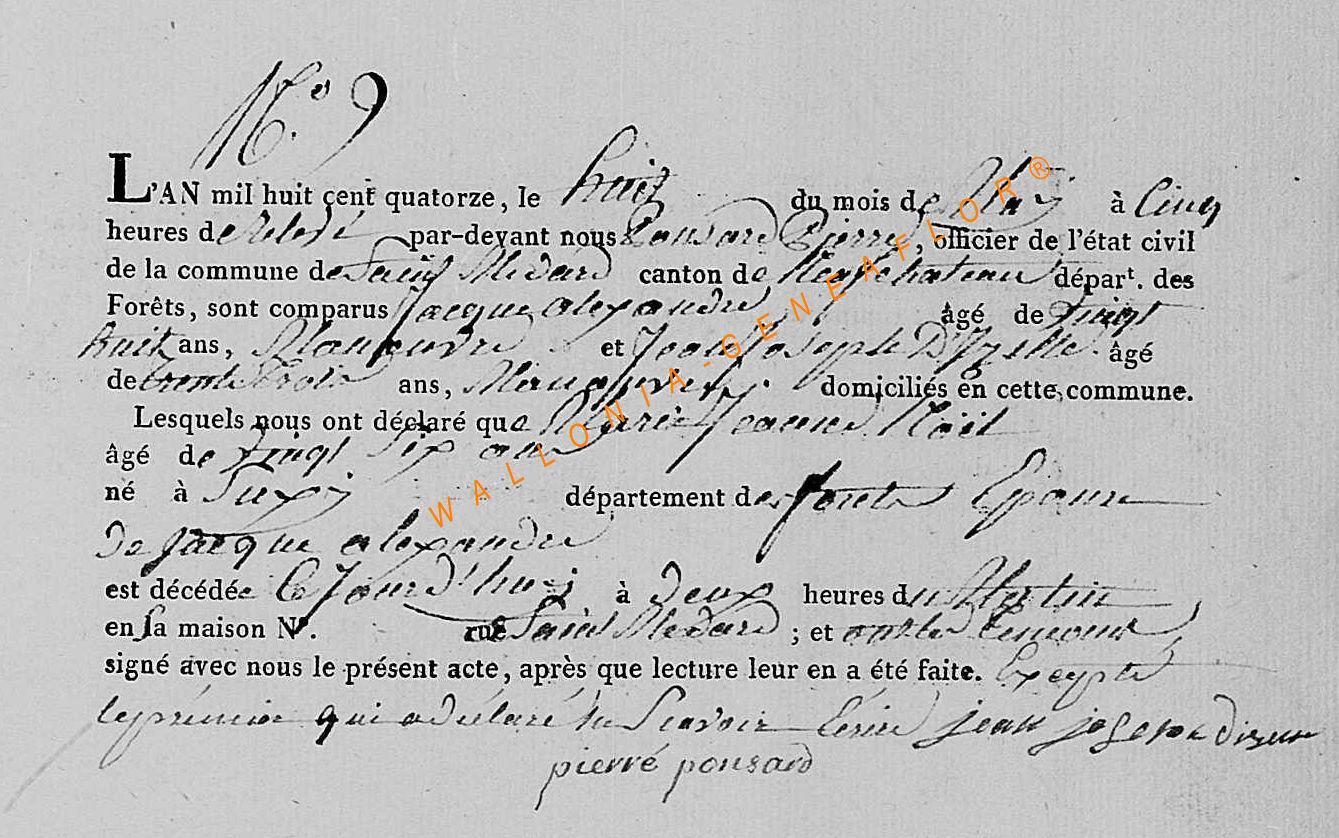 N.º 9
L'AN mil huit cent quatorze, le huit du mois de May à Cinq
heures de Relevé par-devant nous Ponsard Pierre, officier de l'état civil
de la commune de Saint Médard canton de Neufchateau départ. des
Forêts, sont comparus Jacque alexandre âgé de vingt
huit ans, Manœuvre et Jean Joseph D'Izelle âgé
de trente trois ans, Manœuvre domiciliés en cette commune.
Lesquels nous ont déclaré que Marie Jeanne Noël
âgé de vingt Six ans
né à Suxy département des forets Epouse
de Jacque alexandre
est décédée Ce Jourd'huy à deux heures du Matin
en sa maison N.º rue Saint Médard ; et ont les temoins
signé avec nous le présent acte, après que lecture leur en a été faite. Exepté
le premier qui a déclaré ne Scavoir Ecrire jean joseph dizelle
pierre ponsard
WALLONIA-GENEAFLOR®